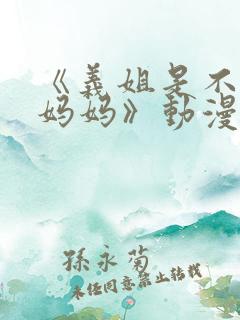 《義姐是不
妈妈》動漫
孫永菊
未经同意禁止转载